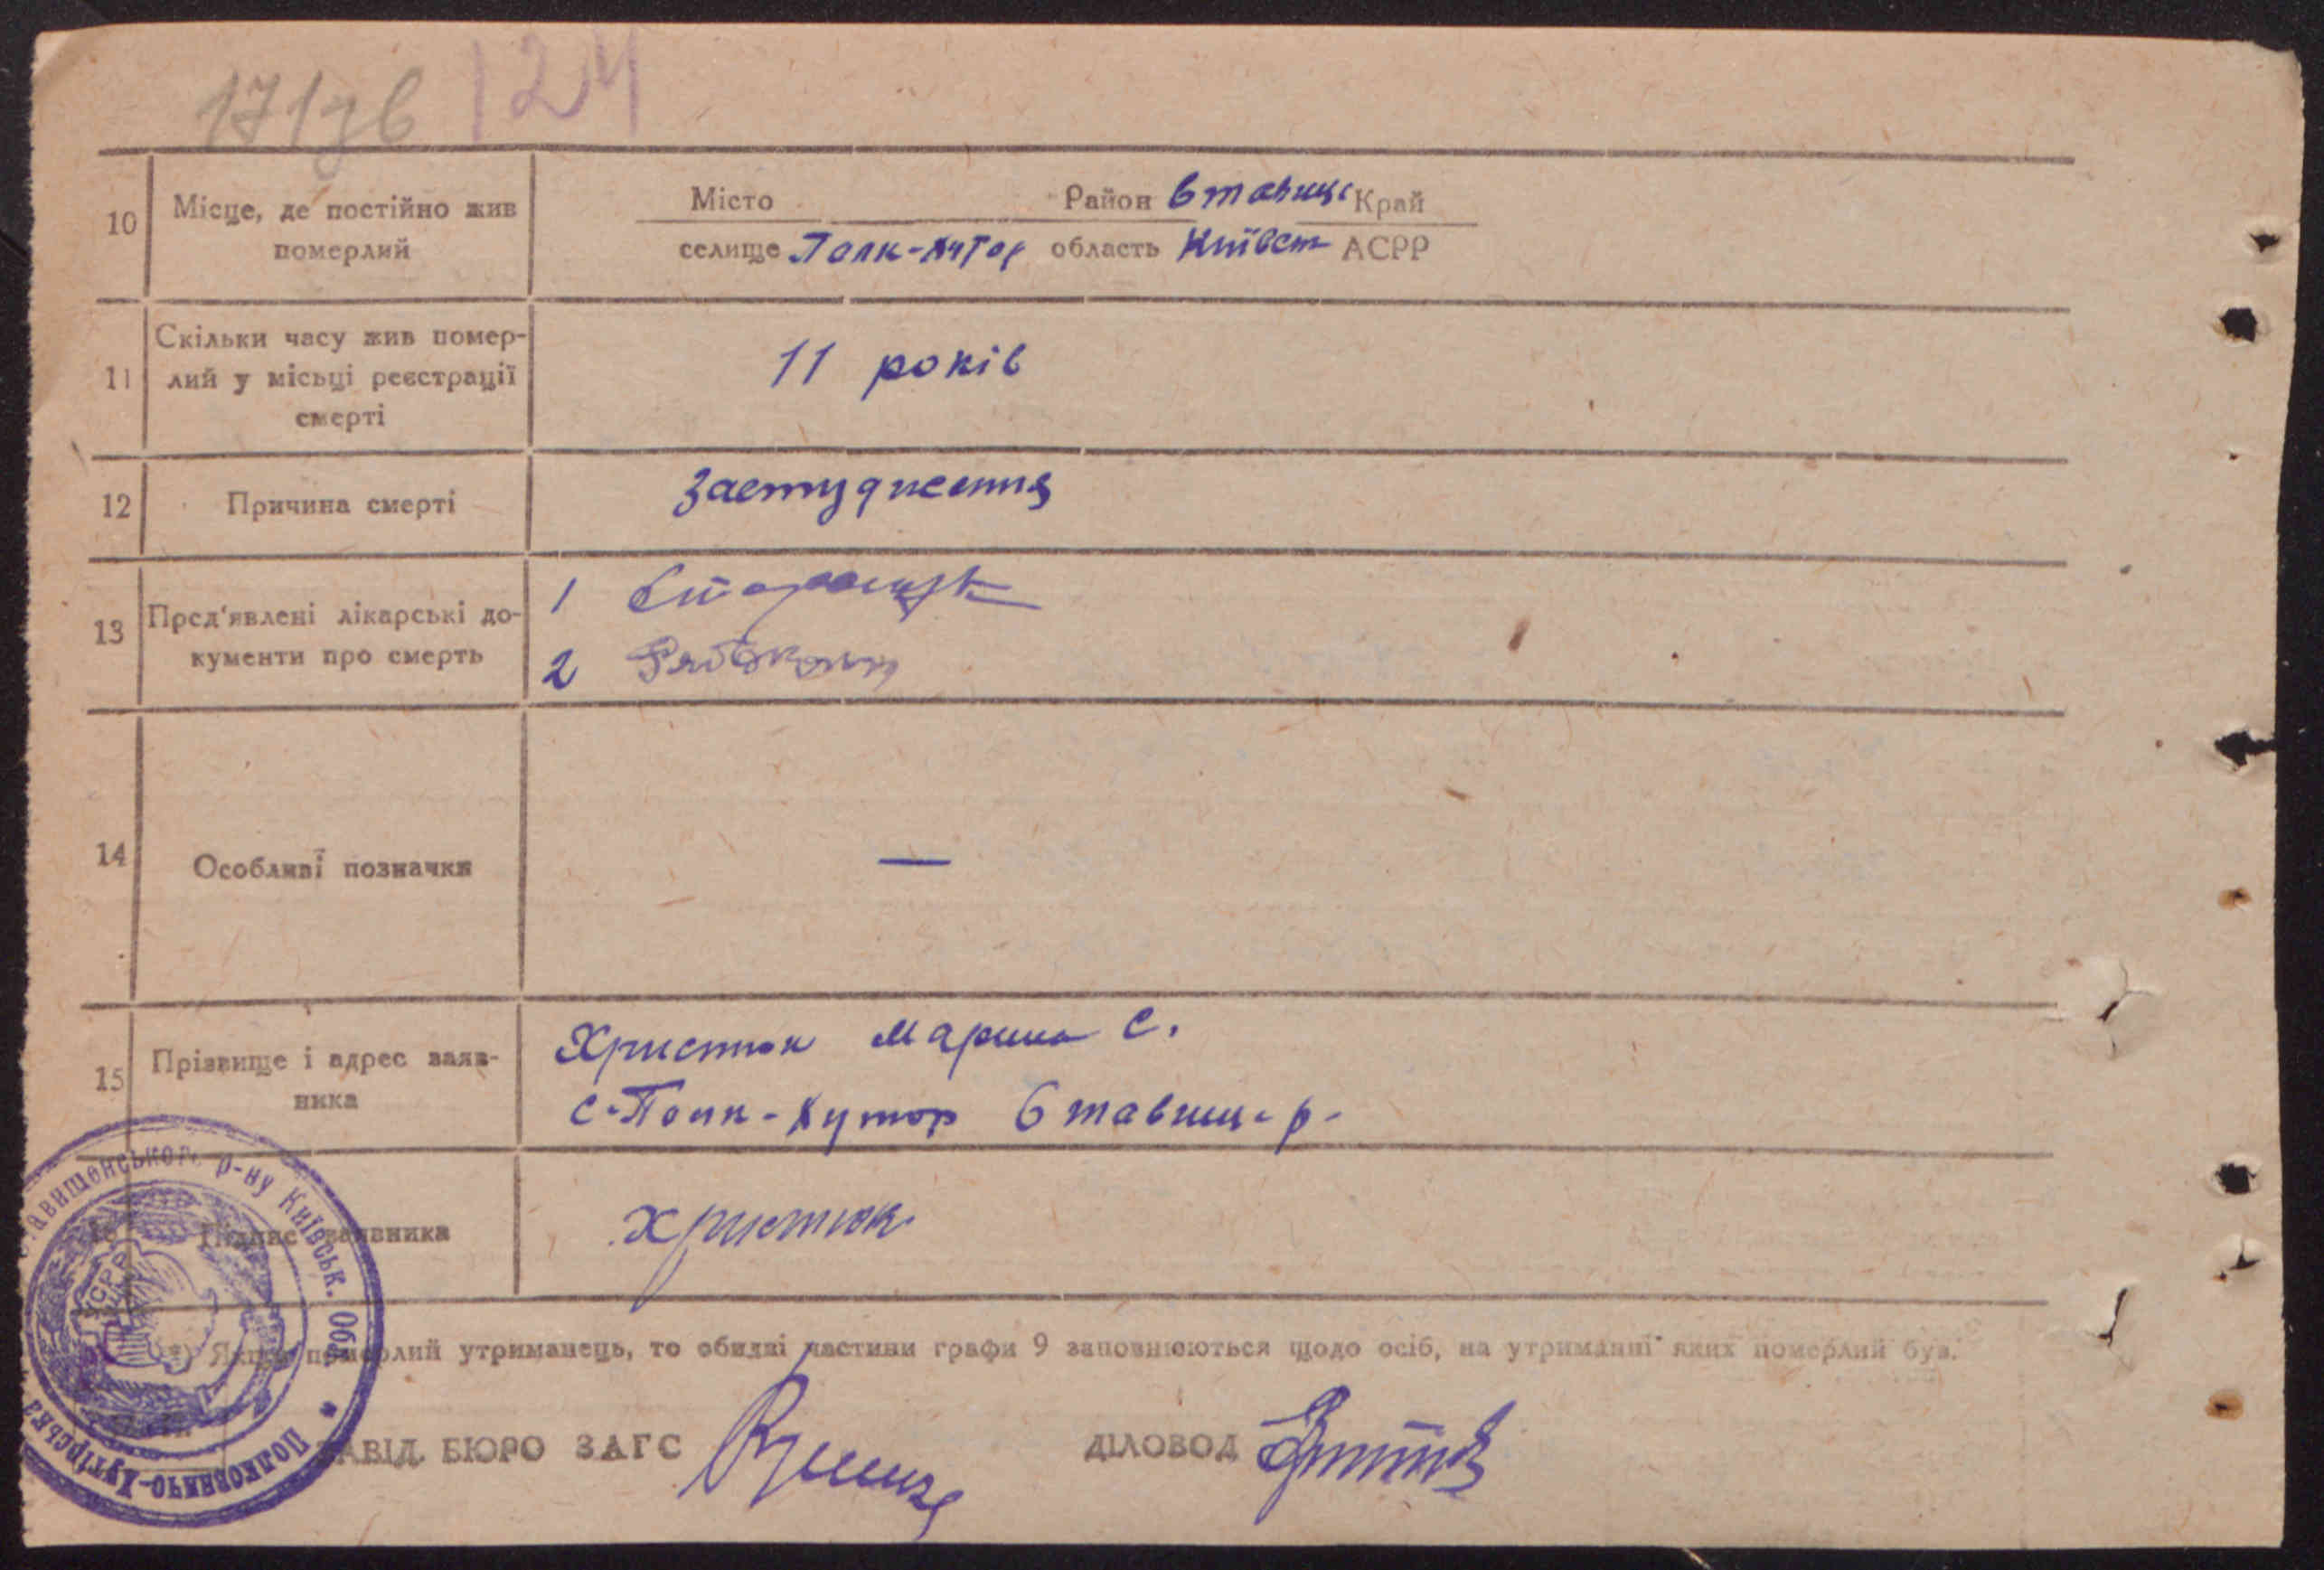 171зв 124
10 Місце, де постійно жив померлий
Місто Район Ставищ Край
селище Полк-Хутор область Київськ АСРР
11 Скільки часу жив помер-
лий у місьці реєстрації
смерті
11 років
12 Причина смерті
Застудження
13 Пред'явлені лікарські до-
кументи про смерть
1
2
14 Особливі позначки
—
15 Прізвище і адрес заяв-
ника
Христюк Марина С.
с-Полк-Хутор Ставищ-р-
16 Підпис заявника
Христюк
*) Якщо померлий утриманець, то обидві частини графи 9 заповнюються щодо осіб, на утриманні яких померлий був.
ЗАВІД. БЮРО ЗАГС
ДІЛОВОД
Ставищенського р-ну Київськ. Обл. * Полковничо-Хутірська
УСРР